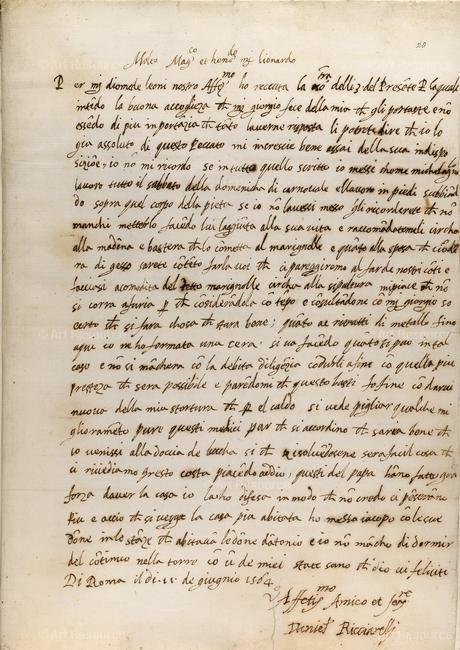 28
Molto Mag.co et hon.do mr lionardo
Per mr diomede leoni nostro Aff.mo ho receuta la vra delli 3 del Presete P laquale
intido la buona accogleza ch mr giorgio fece della mia ch gli portaste e no
essedo di piu inportazia ch tato laverne risposta li potrete dire ch io lo
gia assoluto di questo Peccato mi increscie bene assai della sua indispo
sizioe, io no mi ricordo se in tutto quello scritto io messi chome michelagnio
lavoro tutto il sabbato della domenicha di carnovale e lavoro in piedi
do sopra quel corpo della pieta se io no lavessi messo gli ricorderete ch no
manchi metterlo facedo lui laggiuta alla sua vita e raccomadatemeli circha
alla madona e bastera ch lo cometta al marignolle e quato alla spesa ch
ra di gesso sarete coteto farla voi ch ci pareggiremo al far de nostri coti e
facciasi acomodita del detto marignolle circha alla sepultura mi piace ch no
si corra a furia p ch cosideradola co tepo e cosultadone co mr giorgio so
certo ch si fara chosa ch stara bene; quato ae ritratti di metallo fino
aqui io ne ho formata una cera si va facedo quato si puo in tal
caso e no si machera co la debita diligezia codurli a fine co quella piu
prestezza ch sera possibile e paredomi ch questo basti fo fine co darvi
nuova della mia stortura ch p el caldo si vede pigliar qualche mi
glioramento pure questi medici par ch si accordino ch sarea bene ch
io venissi alla doccia de luccha si ch risolvedosene sera facil cosa ch
ci rivediamo presto costa piacedo a dio, questi del papa hano fatto gra
forza d aver la casa io la ho difesa in modo ch no credo ci possino
piu e accio ch si vegga la casa pia abitata ho messo iacopo co le sue
done in le staze ch abitava le done d antonio e io no macho di dormir
del cotinuo nella torre co u de miei state sano ch dio vi feliciti
Di Roma il di 11 de giugnio 1564
Affetis.mo Amico et Ser.re
Daniel Ricciarelli
Art Resource